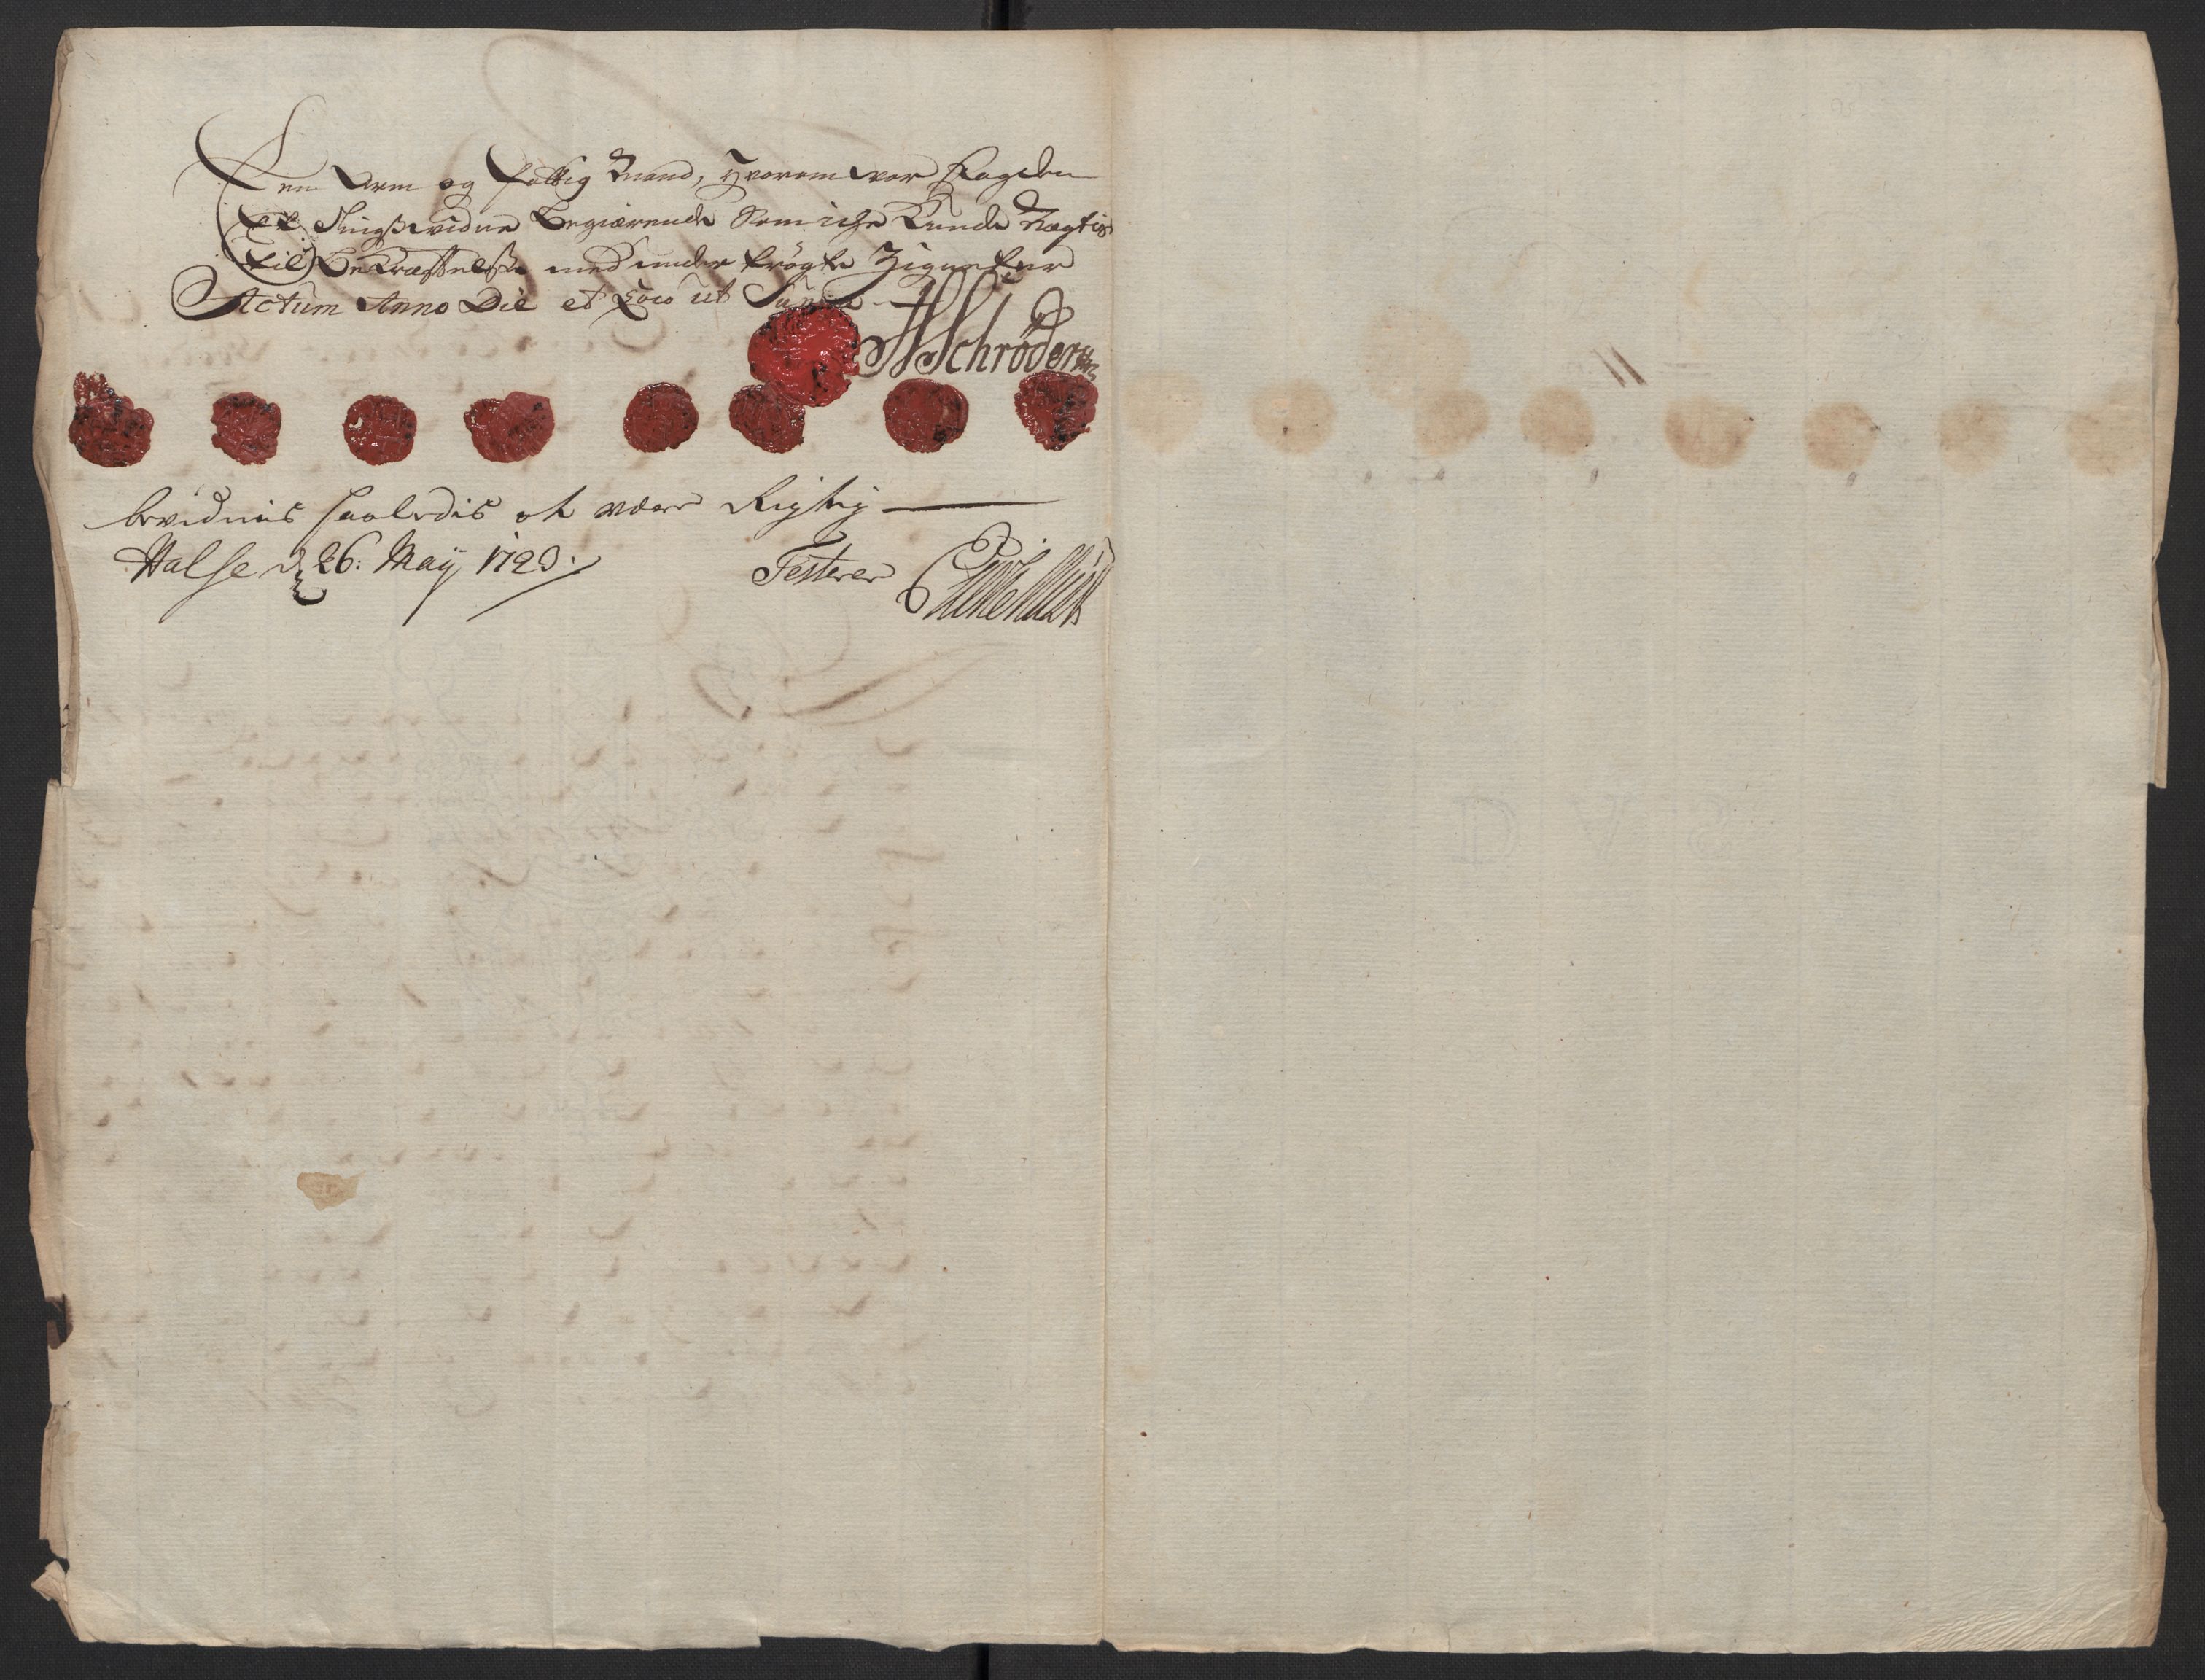 En Arm og fattig Mand, hvorom var fogden
Et Tingsvidne Begiærende som iche Kunde Negtis
til Bekræftelse med under trögte Zigneter
Actum Anno Die et Loco ut Supra
Schrøder
bevidnis saaledis at være Rigtig
Halse d 26: Maÿ 1723.
Testerer